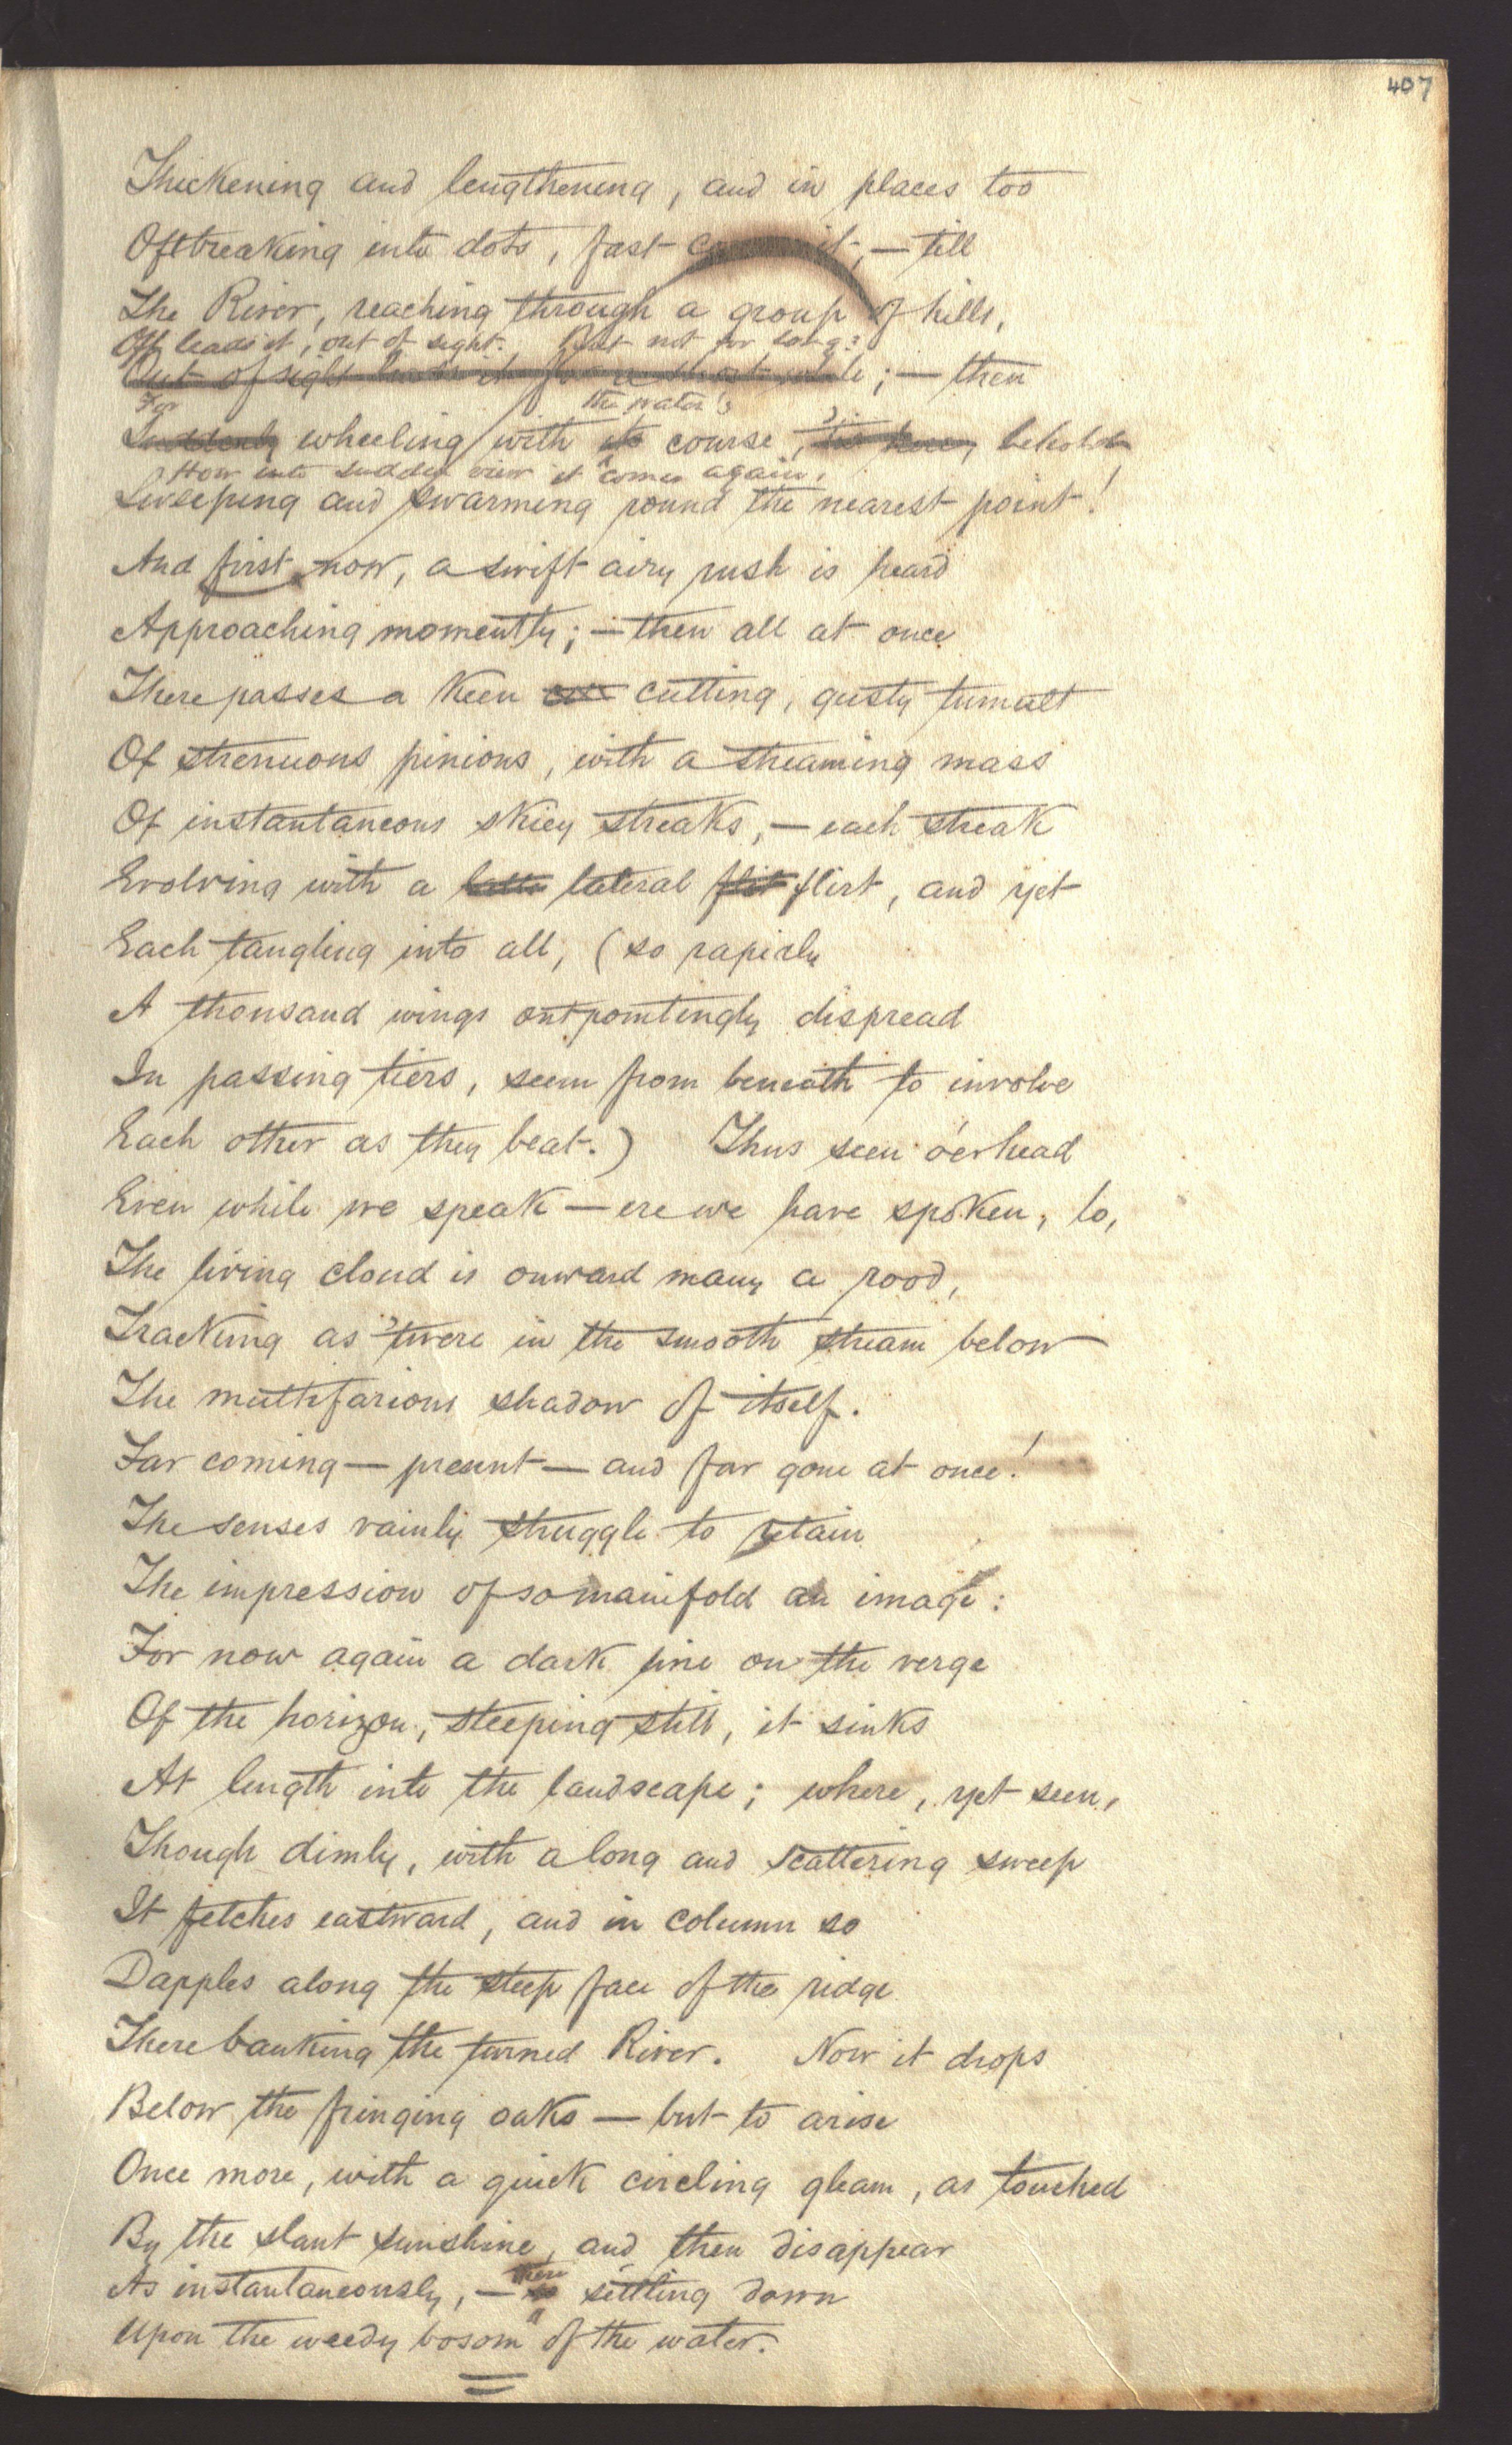 407
Thickening and lengthening, and in places too
Oft breaking into dots, fast it; — till
The River, reaching through a group of hills,
Off leads it, out of sight. But not for long:
Out of sight leads it for a short while; — then
For the water's
Suddenly wheeling with its course, behold
How into sudden view it comes again,
Sweeping and swarming round the nearest point!
And first now, a swift airy rush is heard
Approaching momently; — then all at once
There passes a keen cutting, gusty tumult
Of strenuous pinions, with a streaming mass
Of instantaneous skiey streaks, — each streak
Evolving with a lateral flit flirt, and yet
Each tangling into all, (so rapidly
A thousand wings outpointingly dispread
In passing tiers, seem from beneath to involve
Each other as they beat.) Thus seen o'erhead
Even while we speak — ere we have spoken, lo,
The living cloud is onward many a rood,
Tracking as 'twere in the smooth stream below
The multifarious shadow of itself.
Far coming — present — and far gone at once!
The senses vainly struggle to retain
The impression of so manifold an image:
For now again a dark line on the verge
Of the horizon, steeping still, it sinks
At length into the landscape; where, yet seen,
Though dimly, with a long and scattering sweep
It fetches eastward, and in column so
Dapples along the steep face of the ridge
There banking the turned River. Now it drops
Below the fringing oaks — but to arise
Once more, with a quick circling gleam, as touched
By the slant sunshine, and then disappear
As instantaneously, — there settling down
Upon the weedy bosom of the water.